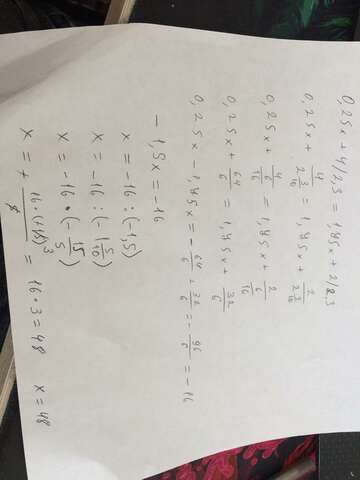 0,25x + 4/2,3 = 1,85x + 2/2,3
0,25x + 4/(2·3/16) = 1,45x + 2/(2·3/16)
0,25x + 4/(6/16) = 1,45x + 2/(6/16)
0,25x + 64/6 = 1,45x + 32/6
0,25x - 1,45x = - 64/6 + 32/6 = - 96/6 = -16
- 1,5x = -16
x = -16 : (-1,5)
x = -16 : (-1 5/10)
x = -16 • (- 15/5)
x = + 16·(+15)³/5 = 16·3 = 48 x = 48